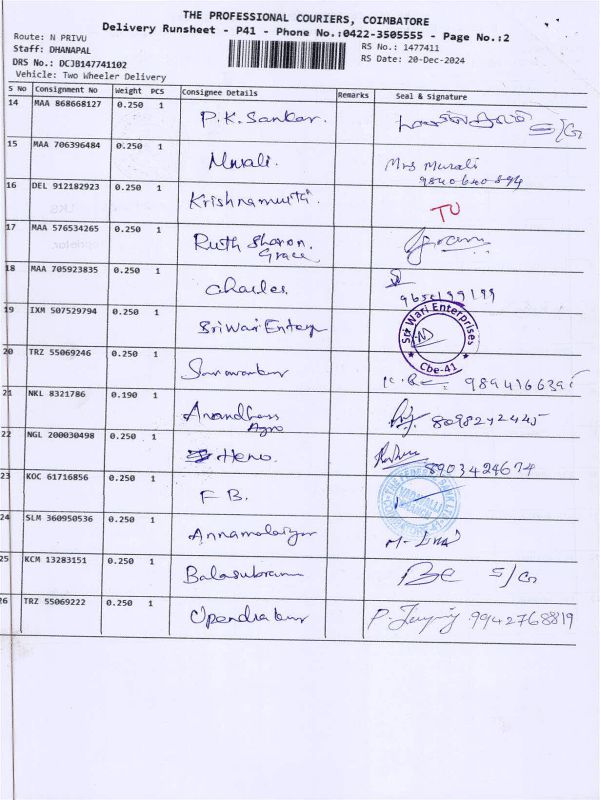 THE PROFESSIONAL COURIERS, COIMBATORE
Delivery Runsheet - P41 - Phone No.:0422-3505555 - Page No.:2
Route: N PRIVU
RS No.: 1477411
Staff: DHANAPAL
RS Date: 20-Dec-2024
DRS No.: DCJB147741102
Vehicle: Two Wheeler Delivery
S No Consignment No Weight PCS Consignee Details Remarks Seal & Signature
14 MAA 868668127 0.250 1 P.K. Sankar.
15 MAA 706396484 0.250 1 Murali. Mrs Murali
9840640894
16 DEL 912182923 0.250 1 Krishnamurti. TU
17 MAA 576534265 0.250 1 Ruth Sharon.
Grace
18 MAA 705923835 0.250 1 Charles.
19 IXM 507529794 0.250 1 Sri Wari Enterp Sri Wari Enterprises
Cbe-41
20 TRZ 55069246 0.250 1
21 NKL 8321786 0.190 1 Anandhass
Agro 8098242445
22 NGL 200030498 0.250 1 Hero. 8903424674
23 KOC 61716856 0.250 1 F B. THE FEDERAL BANK LTD
24 SLM 360950536 0.250 1 Annamalaiyar
25 KCM 13283151 0.250 1 Balasubramani S/G
26 TRZ 55069222 0.250 1 Upendrakumar 9942768819